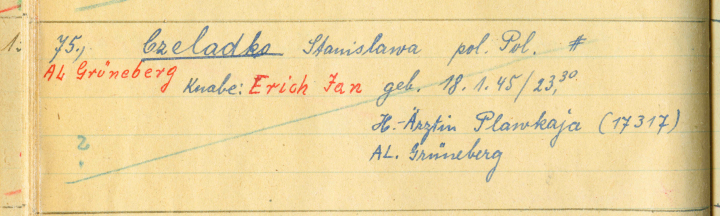 75., Czeladko Stanislawa pol. Pol. #
AL Grüneberg
Knabe: Erich Jan geb. 18.1.45/23,30
H.-Ärztin Plawkaja (17317)
AL. Grüneberg
?